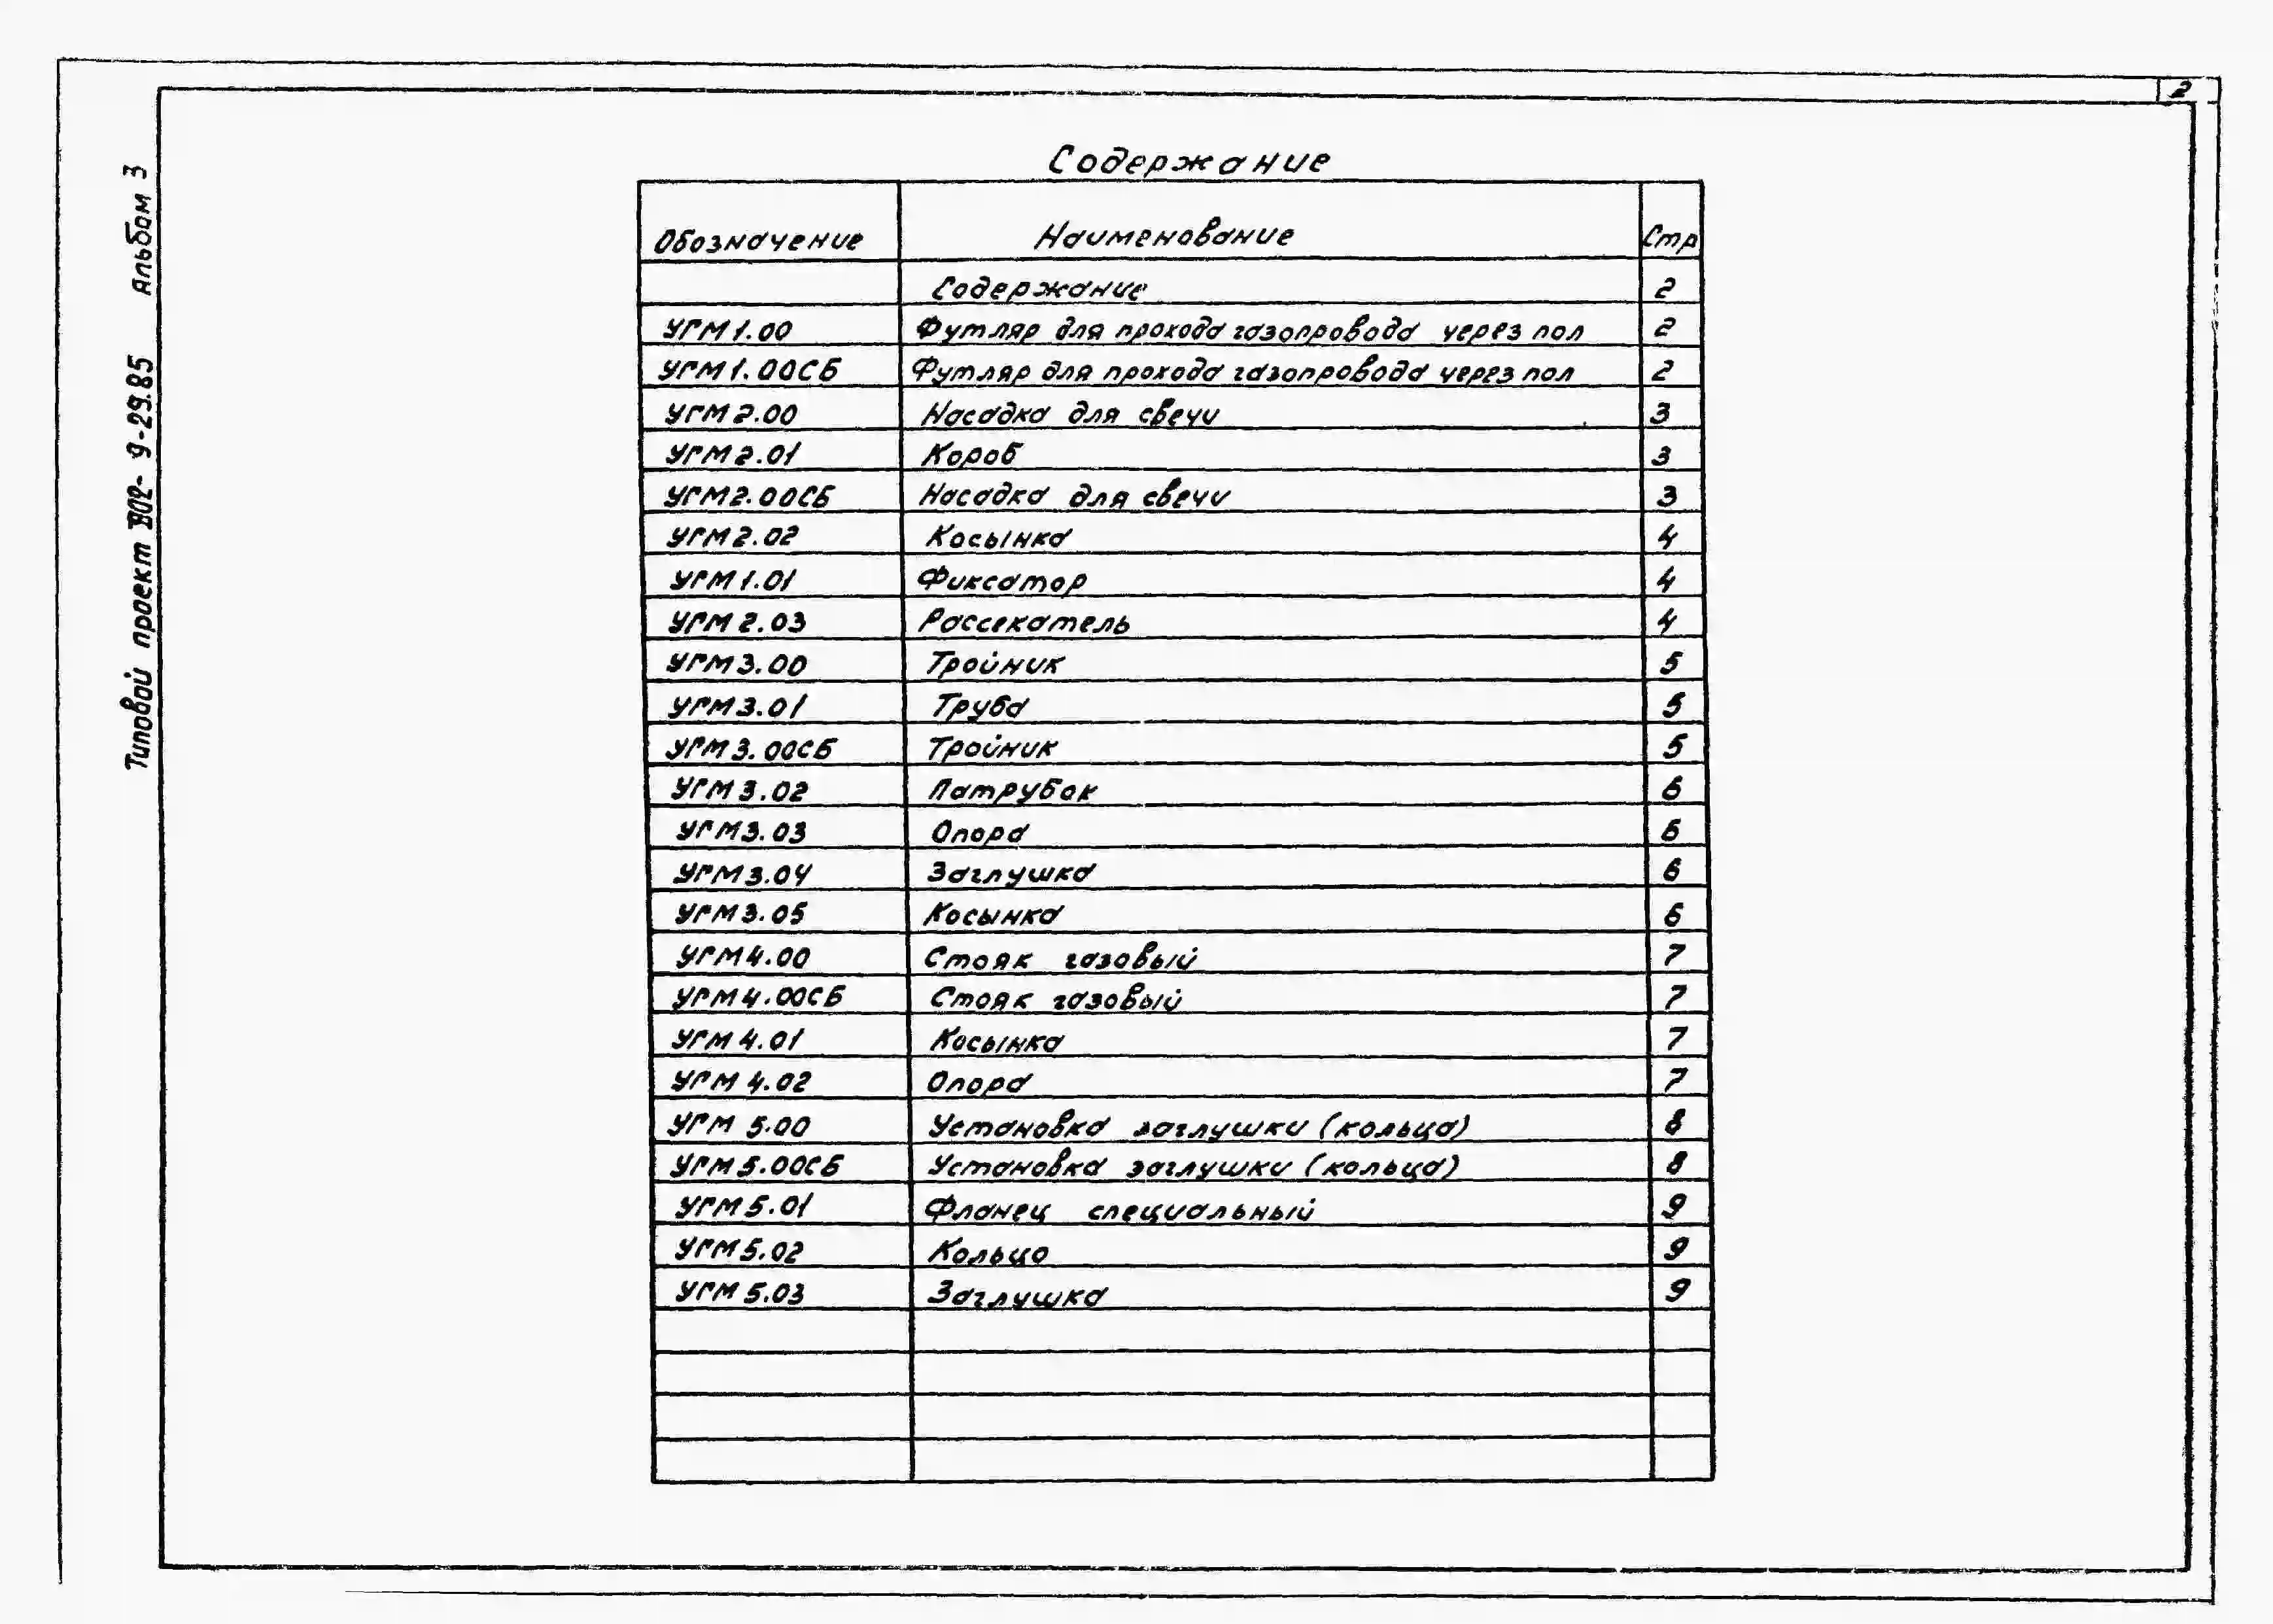 2
Типовой проект 902-9-29.85 Альбом 3
Содержание
Обозначение Наименование Стр
Содержание 2
УГМ1.00 Футляр для прохода газопровода через пол 2
УГМ1.00СБ Футляр для прохода газопровода через пол 2
УГМ2.00 Насадка для свечи 3
УГМ2.01 Короб 3
УГМ2.00СБ Насадка для свечи 3
УГМ2.02 Косынка 4
УГМ1.01 Фиксатор 4
УГМ2.03 Рассекатель 4
УГМ3.00 Тройник 5
УГМ3.01 Труба 5
УГМ3.00СБ Тройник 5
УГМ3.02 Патрубок 6
УГМ3.03 Опора 6
УГМ3.04 Заглушка 6
УГМ3.05 Косынка 6
УГМ4.00 Стояк газовый 7
УГМ4.00СБ Стояк газовый 7
УГМ4.01 Косынка 7
УГМ4.02 Опора 7
УГМ 5.00 Установка заглушки (кольца) 8
УГМ5.00СБ Установка заглушки (кольца) 8
УГМ5.01 Фланец специальный 9
УГМ5.02 Кольцо 9
УГМ5.03 Заглушка 9